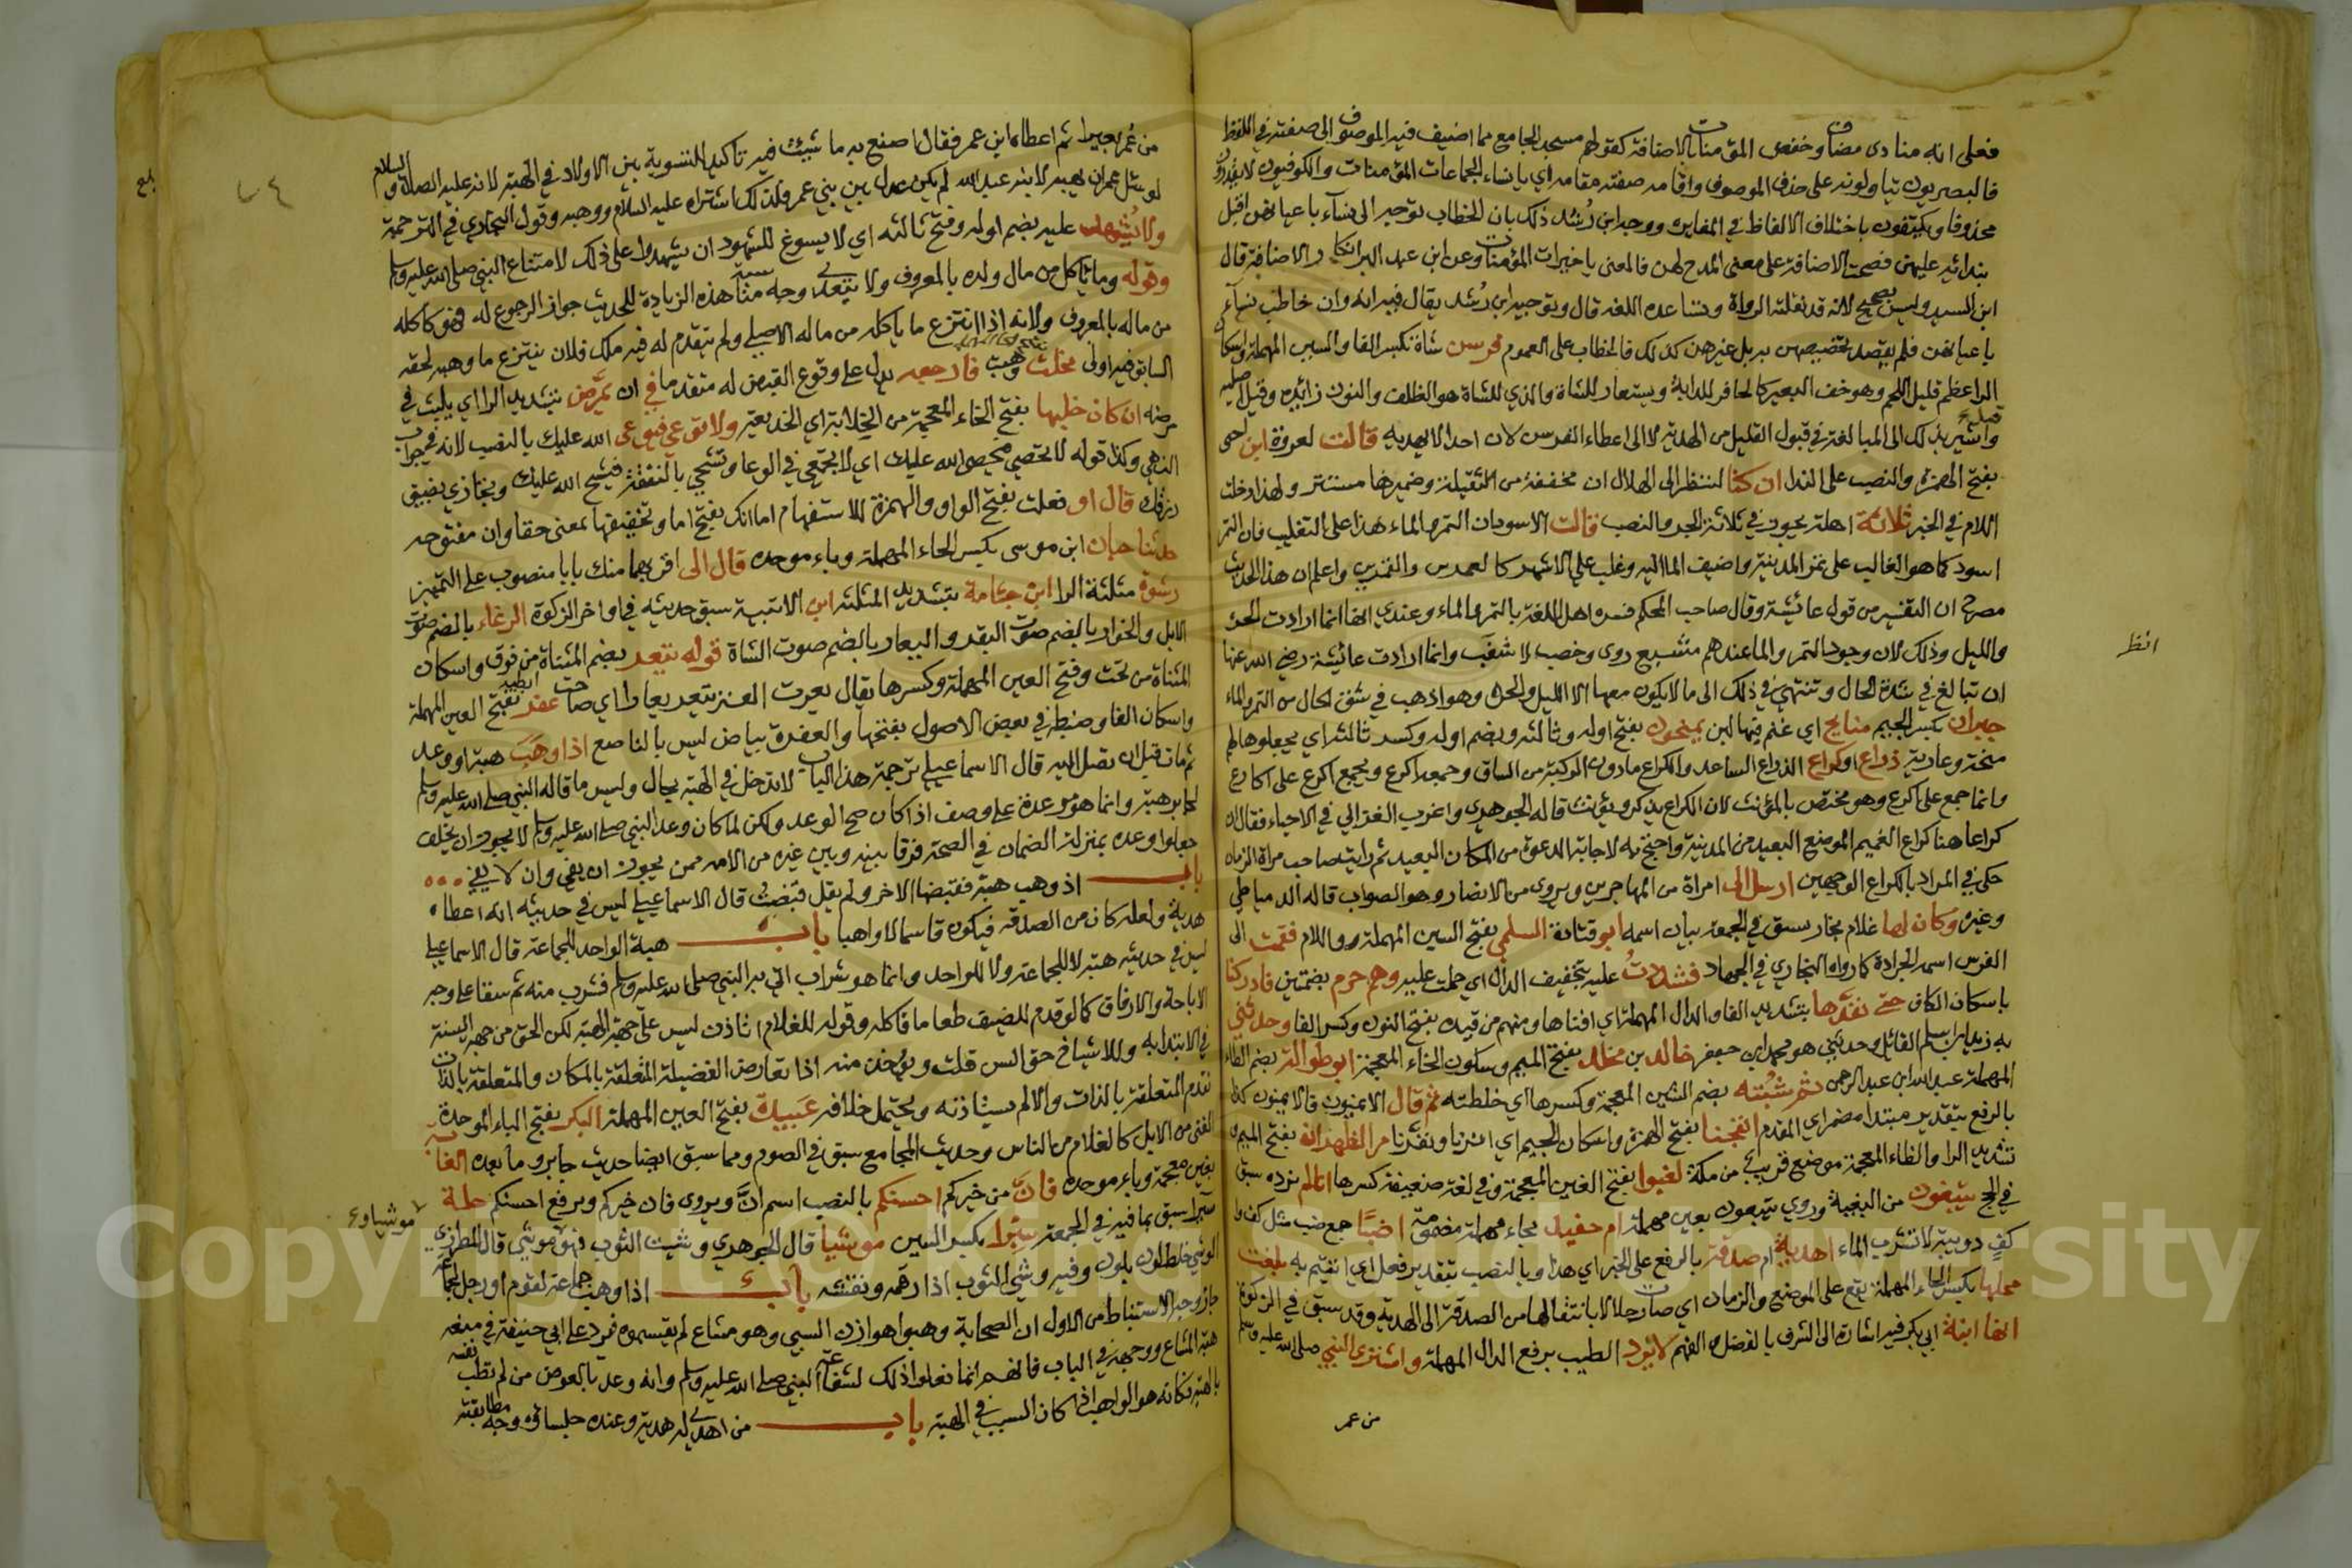 فعلى انه منادى مضاف وخفض المؤمنات بالاضافة كقولهم مسجد الجامع مما اضيف فيه الموصوف الى صفته في اللفظ
فالبصريون يتاولونه على حذف الموصوف واقامه صفته مقامه اي يا نساء الجماعات المؤمنات والكوفيون لا يقدرون
محذوفا ويكتفون باختلاف الالفاظ في المغايرة ووجه ابن رُشد ذلك بان الخطاب توجه الى نساء باعيانهن اقبل
بندائه عليهن فصحت الاضافة على معنى المدح لهن فالمعنى يا خيرات المؤمنات وعن ابن عبد البر انكار الاضافة قال
ابن السيد وليس بصحيح لانه قد نقلته الرواة وتساعده اللغه قال وتوجيه ابن رُشد يقال فيه انه وان خاطب نساء
باعيانهن فلم يقصد تخصيصهن به بل غيرهن كذلك فالخطاب على العموم فرسن شاة بكسر الفا والسين المهملة واسكان
الرا عظم قليل اللحم وهو خف البعير كالحافر للدابة ويستعار للشاة والذي للشاة هو الظلف والنون زائدة وقيل اصليه
واشير بذلك الى المبالغة في قبول القليل من الهدية لا الى اعطاء الفرسن لان احدا لا يهديه قالت لعروة ابن اختي
بفتح الهمزة والنصب على الندا ان كنا لننظر الى الهلال ان مخففة من الثقيلة وضميرها مستتر ولهذا دخلت
اللام في الخبر ثلاثة اهلة يجوز في ثلاثة الجر والنصب قالت الاسودان التمر والماء هذا على التغليب فان التمر
اسود كما هو الغالب على تمر المدينة واضيف الماء اليه وغلب على الاشهر كالعمرين والقمرين واعلم ان هذا الحديث
مصرح ان التفسير من قول عائشة وقال صاحب المحكم فسره اهل اللغة بالتمر والماء وعندي انها انما ارادت الحرة
والليل وذلك لان وجود التمر والما عندهم شبع وري وخصب لا شغب وانما ارادت عائشة رضي الله عنها
ان تبالغ في شدة الحال وتنتهي في ذلك الى ما لا يكون معها الا الليل والحرة وهو اذهب في سوء الحال من التمر والماء
جيران بكسر الجيم منايح اي غنم فيها لبن يمنحون بفتح اوله وثالثه وبضم اوله وكسر ثالثه اي يجعلوها لهم
منحة وعارية ذراع او كراع الذراع الساعد والكراع ما دون الركبة من الساق وجمعه اكرع ويجمع اكرع على اكارع
وانما جمع على اكرع وهو مختص بالمؤنث لان الكراع يذكر ويؤنث قاله الجوهري واغرب الغزالي في الاحياء فقال ان
كراعا هنا كراع الغميم الموضع البعيد من المدينة واحتج به لاجابة الدعوة من المكان البعيد ثم رايت صاحب مراة الزمان
حكى في المراد بالكراع الوجهين ارسل الى امراة من المهاجرين ويروى من الانصار وهو الصواب قاله الدمياطي
وغيره وكان لها غلام نجار سبق في الجمعه بيان اسمه ابو قتادة السلمي بفتح السين المهملة واللام فقمت الى
الفرس اسمه الجرادة كما رواه البخاري في الجهاد فشددتُ عليه بتخفيف الدال اي حملت عليه وهم حرم بضمتين فادركنا
باسكان الكاف حتى نفدها بتشديد الفا والدال المهملة اي افناها ومنهم من قيده بفتح النون وكسر الفا وحدثني
به زيد ابن اسلم القائل وحدثني هو محمد ابن جعفر خالد بن مخلد بفتح الميم وسكون الخاء المعجمة ابو طوالة بضم الطاء
المهملة عبد الله ابن عبد الرحمن ثم شُبته بضم الشين المعجمة وكسرها اي خلطته ثم قال الايمنون فالايمنون كذا
بالرفع بتقدير مبتدا مضمر اي المقدم انفجنا بفتح الهمزة واسكان الجيم اي اثرنا ونفّرنا مر الظهران بفتح الميم و
تشديد الرا والظاء المعجمة موضع قريب من مكة لغبوا بفتح الغين المعجمة وفي لغة ضعيفة كسرها انا لم نرده سبق
في الحج يبتغون من البغية وروي يتبعون بعين مهملة ام حفيد بحاء مهملة مضمومة اضبًا جمع ضب مثل كف وا
كفٍ دويبة لا تشرب الماء اهدية ام صدقة بالرفع على الخبر اي هذا وبالنصب بتقدير فعل اي اتيتم به بلغت
محلها بكسر الحاء المهملة يقع على الموضع والزمان اي صارت حلالا بانتقالها من الصدقة الى الهدية وقد سبق في الزكوة
انها ابنة ابي بكر فيه اشارة الى الشرف بالفضل والفهم لا يُرد الطيب برفع الدال المهملة واشترى النبي صلى الله عليه وسلم
من عمر
انظر
من عُمر بعيرا ثم اعطاه ابن عمر فقال اصنع به ما شيت فيه تاكيد للتسوية بين الاولاد في الهبة لانه عليه الصلاة والسلام
لو سئل عمر ان يهبه لابنه عبد الله لم يكن عدل بين بني عمر فلذلك اشتراه عليه السلام ووهبه وقول البخاري في الترجمة
ولا يُشهد عليه بضم اوله وفتح ثالثه اي لا يسوغ للشهود ان يشهدوا على ذلك لامتناع النبي صلى الله عليه وسلم
وقوله وما ياكل من مال ولده بالمعروف ولا يتعدى وجه مناسبة هذه الزيادة للحديث جواز الرجوع له فهو كاكله
من ماله بالمعروف ولانه اذا انتزع ما ياكله من ماله الاصلي ولم يتقدم له فيه ملك فلان ينتزع ما وهبه لحقه
السابق فيه اولى نحلت وهبت فارجعه يدل على وقوع القبض له متقدما في ان يمَّرض بتشديد الرا اي يلبث في
مرضه ان كان خلبها بفتح الخاء المعجمة من الخلابة اي الخديعة ولا توعي فيوعى الله عليك بالنصب لانه في جواب
النهي وكذا قوله لا تحصي فيحصي الله عليك اي لا تجمعي في الوعا وتشحي بالنفقة فيشح الله عليك وتجازي بضيق
رزقك قال او فعلت بفتح الواو والهمزة للاستفهام اما انك بفتح اما وتخفيفها بمعنى حقا وان مفتوحه
حدثنا حبان ابن موسى بكسر الحاء المهملة وباء موحده قال الى اقربهما منك بابا منصوب على التمييز
رشوة مثلثة الرا ابن جثامة بتشديد المثلثه ابن الاتبية سبق حديثه في اواخر الزكوة الرغاء بالضم صوت
الابل والخوار بالضم صوت البقر واليعار بالضم صوت الشاة قوله تيعر بضم المثناة من فوق واسكان
المثناة من تحت وفتح العين المهملة وكسرها يقال يعرت العنز تيعر يعارا اي صاحت عفر ابطيه بفتح العين المهملة
واسكان الفا وضبط في بعض الاصول بفتحها والعفرة بياض ليس بالناصع اذا وَهَبَ هبة او وعد
ثم مات قبل ان تصل اليه قال الاسماعيلي ترجمة هذا الباب لا تدخل في الهبة بحال وليس ما قاله النبي صلى الله عليه وسلم
لجابر هبة وانما هو عدة على وصف اذا كان صح الوعد ولكن لما كان وعد النبي صلى الله عليه وسلم لا يجوز ان يخلف
جعلوا وعده بمنزلة الضمان في الصحة فرقا بينه وبين غيره من الامه ممن يجوز ان يفي وان لا يفي
باب اذ وهب هبة فقبضها الاخر ولم يقل قبضتُ قال الاسماعيلي ليس في حديثه انه اعطاه
هدية ولعله كان من الصدقه فيكون قاسما لا واهبا باب هبة الواحد للجماعة قال الاسماعيلي
ليس في حديثه هبة لا للجماعة ولا للواحد وانما هو شراب اتي به النبي صلى الله عليه وسلم فشرب منه ثم سقا على وجه
الاباحة والارفاق كما لو قدم للضيف طعاما فاكله وقوله للغلام اتاذن ليس على جهة الهبة لكن الحق من جهة السنة
في الابتدا به وللاشياخ حق السن قلت ويؤخذ منه اذا تعارض الفضيلة المتعلقة بالمكان والمتعلقة بالذات
تقدم المتعلقة بالذات والا لم يستاذنه ويحتمل خلافه عَبيدة بفتح العين المهملة البكر بفتح الباء الموحدة
الفتى من الابل كالغلام من الناس وحديث المجامع سبق في الصوم ومما سبق ايضا حديث جابر وما بعده الغابة
بغين معجمة وباء موحده فانَّ من خيركم احسنكم بالنصب اسم انَّ ويروى فان خيركم وبرفع احسنكم حلة
سيرا سبق بما فيه في الجمعة سِتْرا بكسر السين موشيا قال الجوهري وشيت الثوب فهو موشي قال المطرزي
الوشي خلط لون بلون وفيه وشي الثوب اذا رقمه ونقشه باب اذا وهب جماعة لقوم او رجل لجماعة
جاز وجه الاستنباط من الاول ان الصحابة وهبوا هوازن السبي وهو مشاع لم يقسموه فيرد على ابي حنيفة في منعه
هبة المشاع ووجهه في الباب فانهم انما فعلوا ذلك لشفاعة النبي صلى الله عليه وسلم وانه وعد بالعوض من لم تطب نفسه
بالهبة فكانه هو الواهب اذا كان السبب في الهبة باب من اهدي له هدية وعنده جلساؤه وجه مطابقته
موشيا وع
بلغ
Copyright © King Saud University